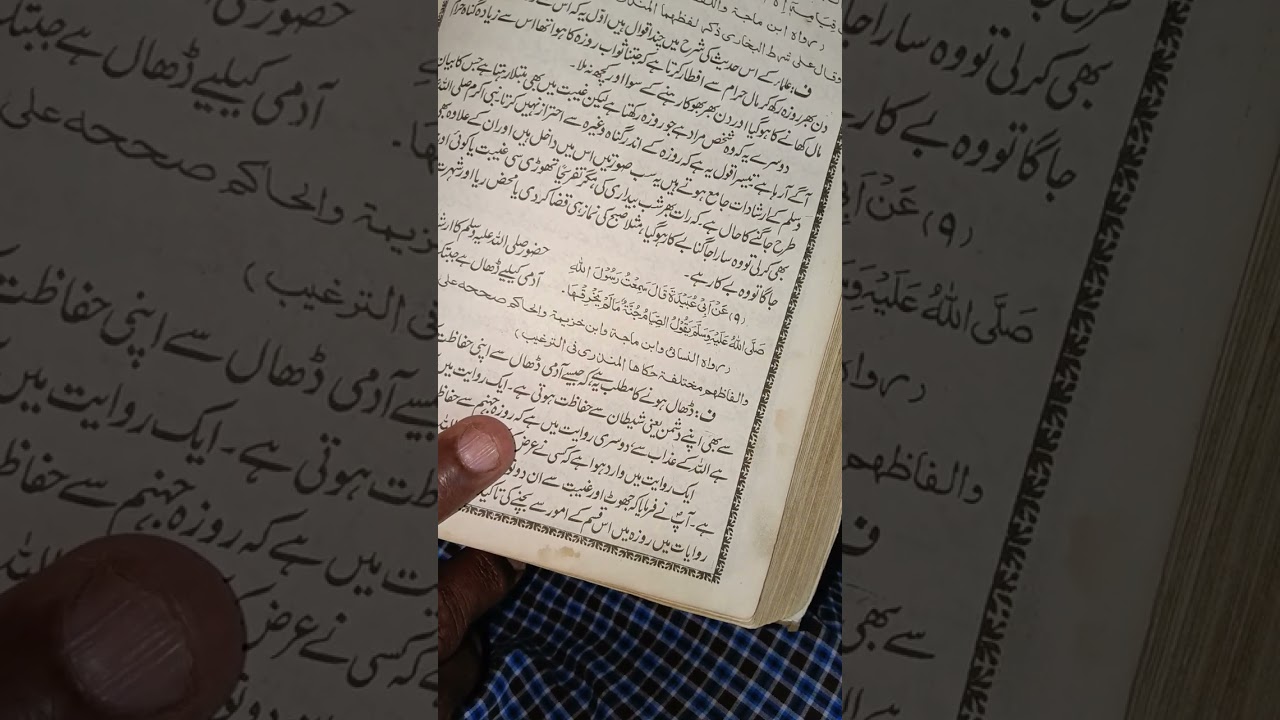 رواہ ابن ماجۃ واللفظ
وقال علی شرط البخاری ذکر لفظہما المنذری
ف: علماء کے اس حدیث کی شرح میں چند اقوال ہیں اول یہ کہ اس سے
دن بھر روزہ رکھ کر مال حرام سے افطار کرتا ہے کہ جتنا ثواب روزہ کا ہوا تھا اس سے زیادہ گناہ حرام
مال کھانے کا ہوگیا اور دن بھر بھوکا رہنے کے سوا اور کچھ نہ ملا۔
دوسرے یہ کہ وہ شخص مراد ہے جو روزہ رکھتا ہے لیکن غیبت میں بھی مبتلا رہتا ہے جس کا بیان
آگے آرہا ہے تیسرا قول یہ ہے کہ روزہ کے اندر گناہ وغیرہ سے احتراز نہیں کرتا نبی اکرم صلی اللہ
وسلم کے ارشادات جامع ہوتے ہیں یہ سب صورتیں اس میں داخل ہیں اور ان کے علاوہ بھی
طرح جاگنے کا حال ہے کہ رات بھر شب بیداری کی مگر تفریحاً تھوڑی سی غیبت یا کوئی اور
بھی کرلی تو وہ سارا جاگنا بے کار ہوگیا، مثلاً صبح کی نماز ہی قضا کر دی یا محض ریا اور شہرت
جاگا تو وہ بے کار ہے۔
(۹) عَنْ اَبِیْ عُبَیْدَۃَ قَالَ سَمِعْتُ رَسُوْلَ اللّٰہِ حضور صلی اللہ علیہ وسلم کا ارش
صَلَّی اللّٰہُ عَلَیْہِ وَسَلَّمَ یَقُوْلُ الصِّیَامُ جُنَّۃٌ مَالَمْ یَخْرِقْہَا۔ آدمی کیلیے ڈھال ہے جبتک
(رواہ النسائی وابن ماجۃ وابن خزیمۃ والحاکم وصححہ علی
والفاظھم مختلفۃ حکاھا المنذری فی الترغیب)
ف: ڈھال ہونے کا مطلب یہ ہے کہ جیسے آدمی ڈھال سے اپنی حفاظت
سے بھی اپنے دشمن یعنی شیطان سے حفاظت ہوتی ہے۔ ایک روایت میں
ہے اللہ کے عذاب سے، دوسری روایت میں ہے کہ روزہ جہنم سے حفاظ
ایک روایت میں وارد ہوا ہے کہ کسی نے عرض
ہے۔ آپ نے فرمایا کہ جھوٹ اور غیبت سے ان دونو
روایات میں روزہ میں اس قسم کے امور سے بچنے کی تاکید